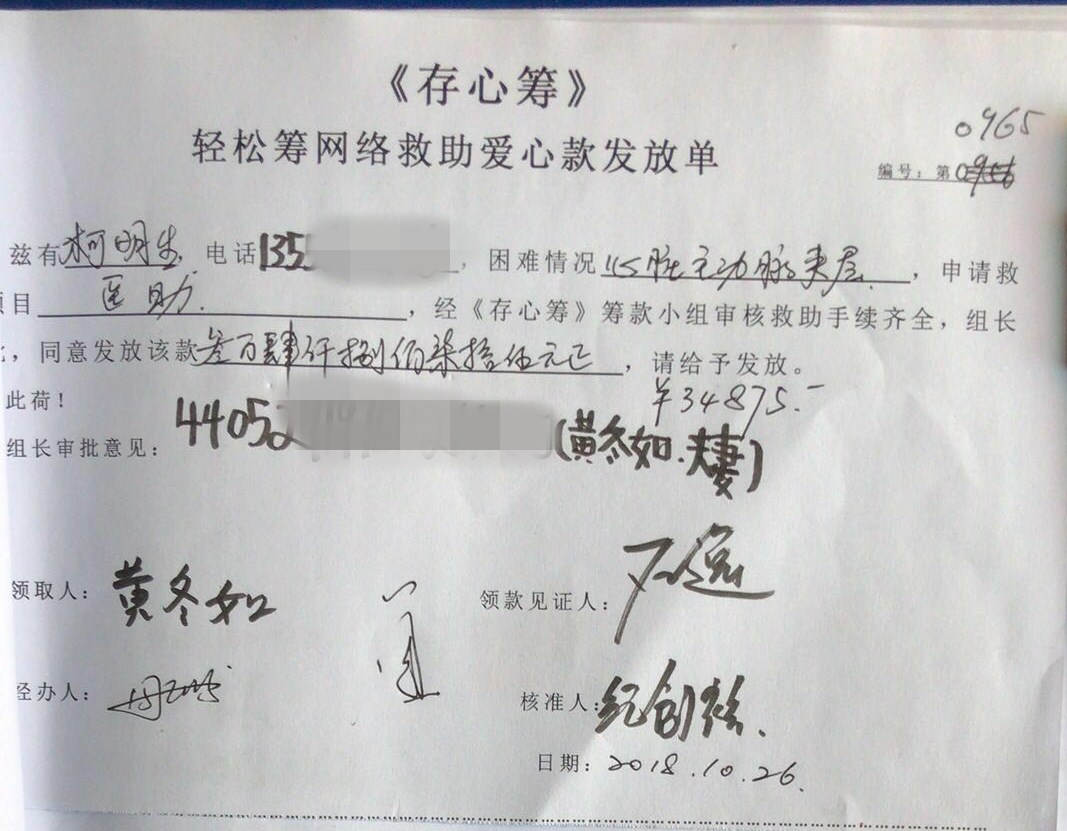 《存心筹》
轻松筹网络救助爱心款发放单
0965
编号：第
兹有柯明生，电话135，困难情况心脏主动脉夹层，申请救
项目医助，经《存心筹》筹款小组审核救助手续齐全，组长
，同意发放该款叁万肆仟捌佰柒拾伍元正，请给予发放。
此荷！
¥34875.-
44052 (黄冬如.夫妻)
组长审批意见：
领取人：黄冬如
领款见证人：
经办人：
核准人：
日期：2018.10.26.